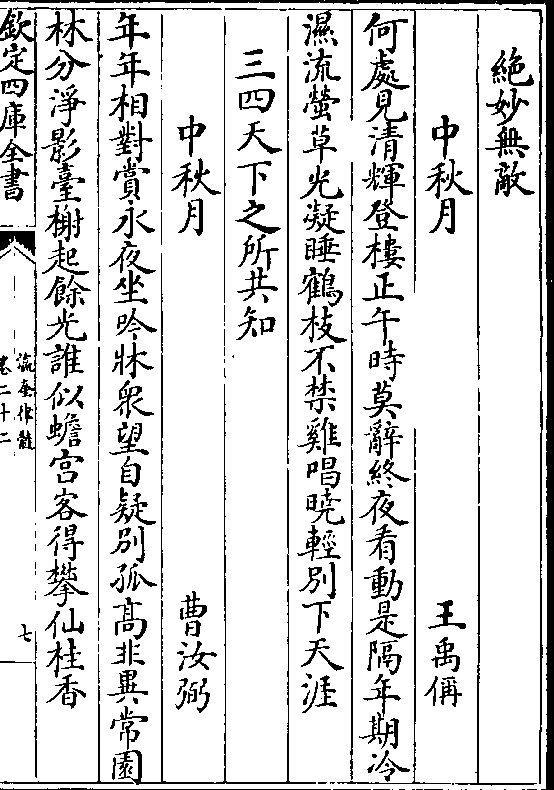 絶妙無敵
中秋月　王禹偁
何處見清輝登樓正午時莫辭終夜看動是隔年期冷
濕流螢草光凝睡鶴枝不禁雞唱曉輕別下天涯
三四天下之所共知
中秋月　曹汝弼
年年相對賞永夜坐吟牀衆望自疑別孤高非異常園
林分淨影臺榭起餘光誰似蟾宮客得攀仙桂香
欽定四庫全書
瀛奎律髓
卷二十二
七